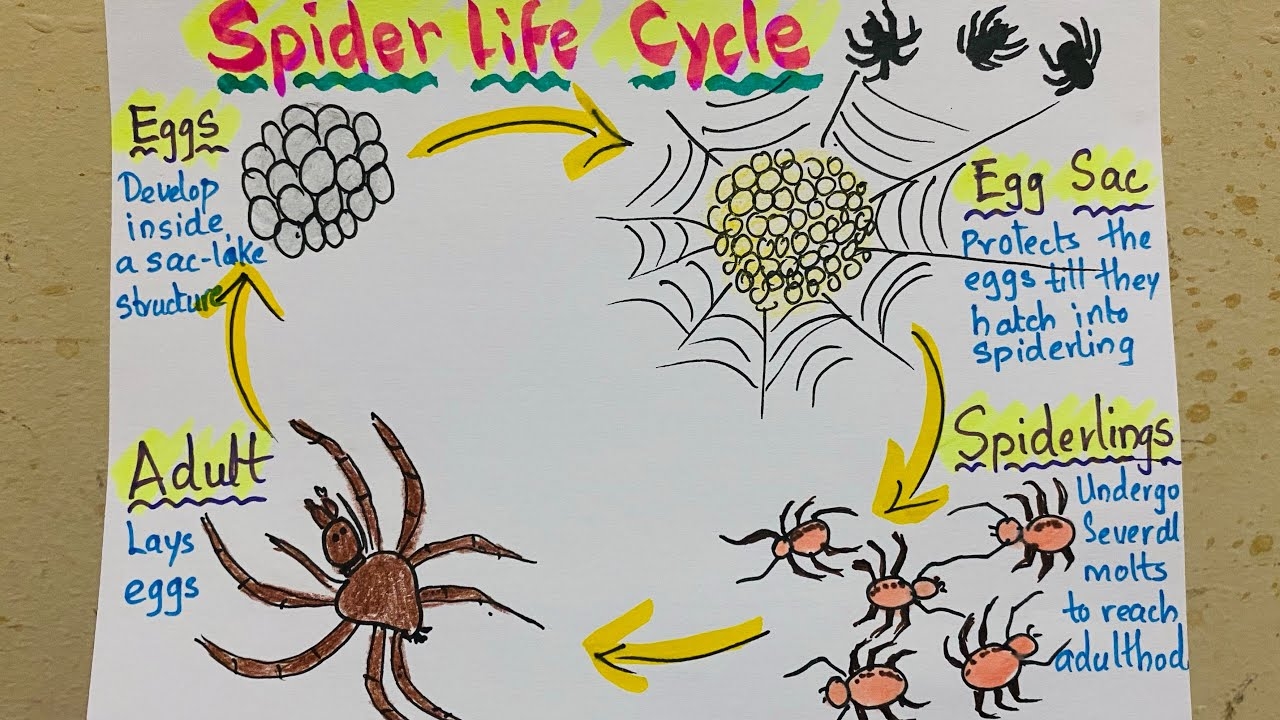 Spider Life Cycle
Eggs
Develop
inside,
a sac-like
structure
Egg Sac
Protects the
eggs till they
hatch into
spiderling
Spiderlings
Undergo
Several
molts
to reach
adulthod
Adult
Lays
eggs